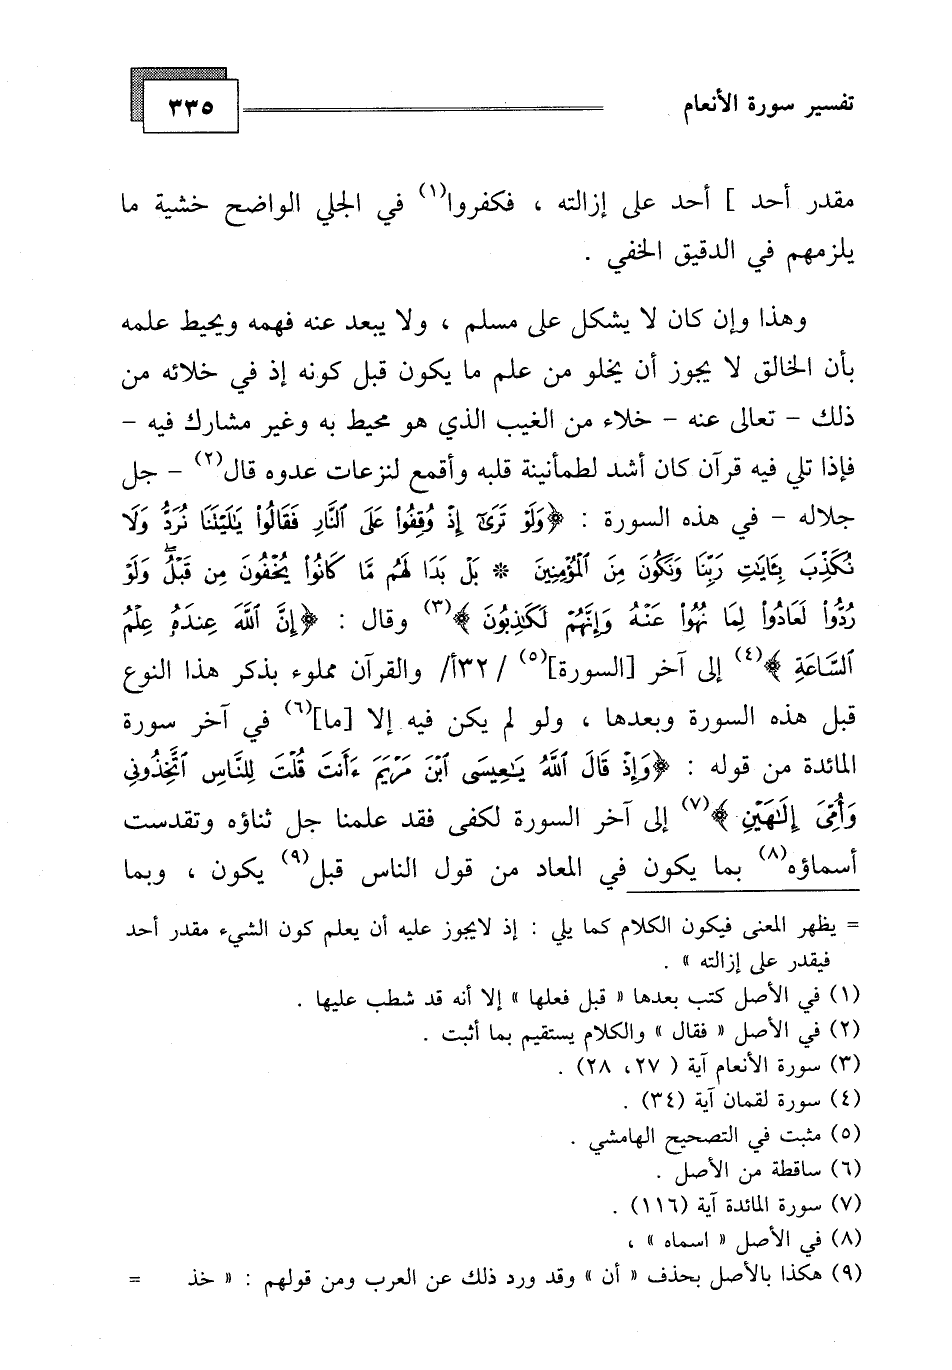 تفسير سورة الأنعام ٣٣٥
مقدر أحد ] أحد على إزالته ، فكفروا(١) في الجلي الواضح خشية ما
يلزمهم في الدقيق الخفي .
وهذا وإن كان لا يشكل على مسلم ، ولا يبعد عنه فهمه ويحيط علمه
بأن الخالق لا يجوز أن يخلو من علم ما يكون قبل كونه إذ في خلائه من
ذلك – تعالى عنه – خلاء من الغيب الذي هو محيط به وغير مشارك فيه –
فإذا تلي فيه قرآن كان أشد لطمأنينة قلبه وأقمع لنزعات عدوه قال(٢) – جل
جلاله – في هذه السورة : ﴿وَلَوْ تَرَىٰٓ إِذْ وُقِفُوا۟ عَلَى ٱلنَّارِ فَقَالُوا۟ يَـٰلَيْتَنَا نُرَدُّ وَلَا
نُكَذِّبَ بِـَٔايَـٰتِ رَبِّنَا وَنَكُونَ مِنَ ٱلْمُؤْمِنِينَ * بَلْ بَدَا لَهُم مَّا كَانُوا۟ يُخْفُونَ مِن قَبْلُ ۖ وَلَوْ
رُدُّوا۟ لَعَادُوا۟ لِمَا نُهُوا۟ عَنْهُ وَإِنَّهُمْ لَكَـٰذِبُونَ ﴾(٣) وقال : ﴿إِنَّ ٱللَّهَ عِندَهُۥ عِلْمُ
ٱلسَّاعَةِ ﴾(٤) إلى آخر [السورة](٥) / ٣٢أ/ والقرآن مملوء بذكر هذا النوع
قبل هذه السورة وبعدها ، ولو لم يكن فيه إلا [ما](٦) في آخر سورة
المائدة من قوله : ﴿وَإِذْ قَالَ ٱللَّهُ يَـٰعِيسَى ٱبْنَ مَرْيَمَ ءَأَنتَ قُلْتَ لِلنَّاسِ ٱتَّخِذُونِى
وَأُمِّىَ إِلَـٰهَيْنِ ﴾(٧) إلى آخر السورة لكفى فقد علمنا جل ثناؤه وتقدست
أسماؤه(٨) بما يكون في المعاد من قول الناس قبل(٩) يكون ، وبما
= يظهر المعنى فيكون الكلام كما يلي : إذ لايجوز عليه أن يعلم كون الشيء مقدر أحد
فيقدر على إزالته » .
(١) في الأصل كتب بعدها « قبل فعلها » إلا أنه قد شطب عليها .
(٢) في الأصل « فقال » والكلام يستقيم بما أثبت .
(٣) سورة الأنعام آية ( ٢٧، ٢٨) .
(٤) سورة لقمان آية (٣٤) .
(٥) مثبت في التصحيح الهامشي .
(٦) ساقطة من الأصل .
(٧) سورة المائدة آية (١١٦) .
(٨) في الأصل « اسماه » ،
(٩) هكذا بالأصل بحذف « أن » وقد ورد ذلك عن العرب ومن قولهم : « خذ =